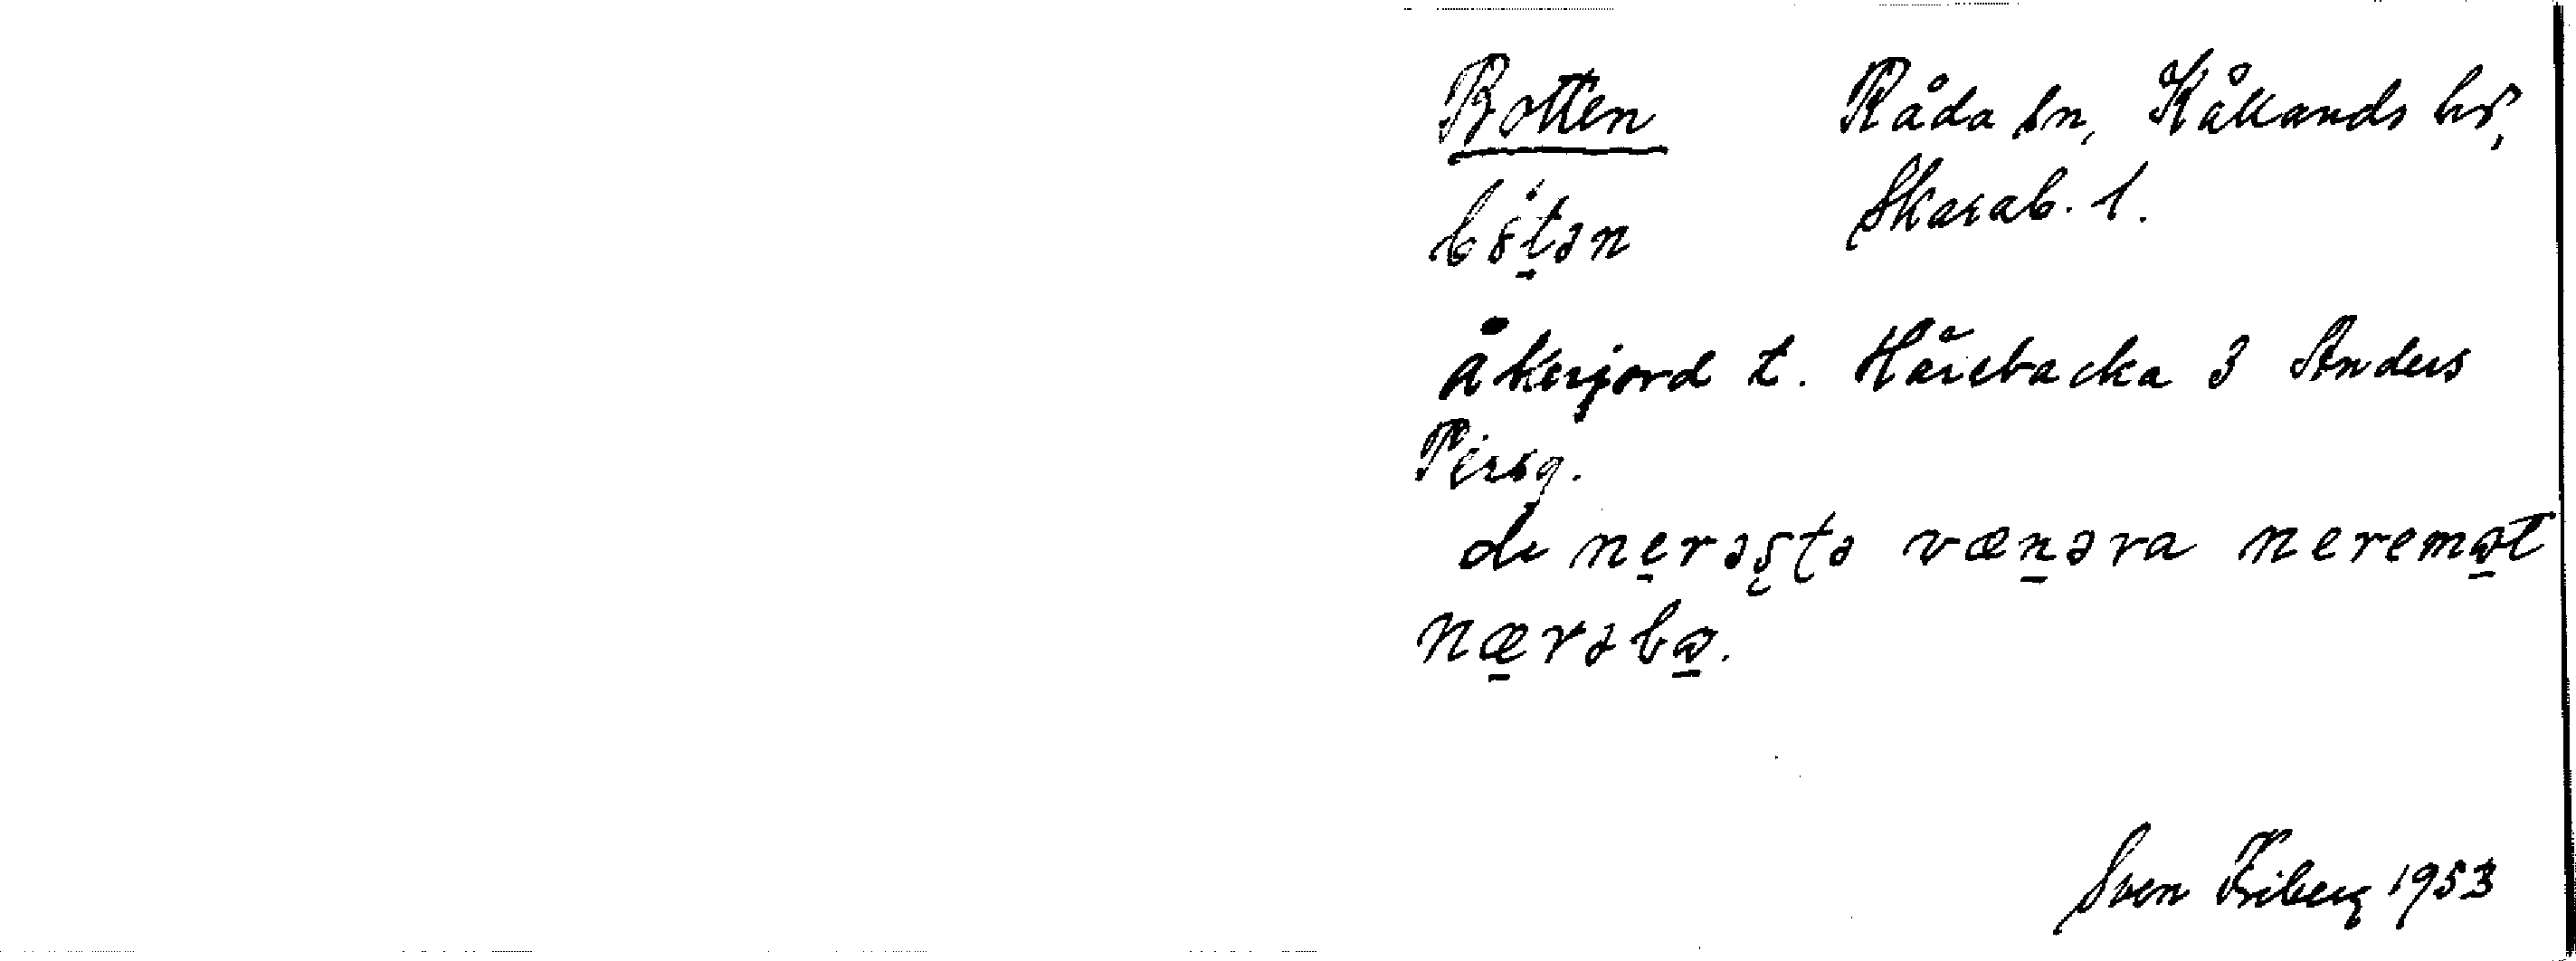 Botten Råda sn, Kållands hd,
bötən Skarab. l.
åkerjord t. Hårebacka 3 Anders
Persg.
de nerəʂtə vænəra neremɷt
nærəbɷ.
Sven Friberg 1953